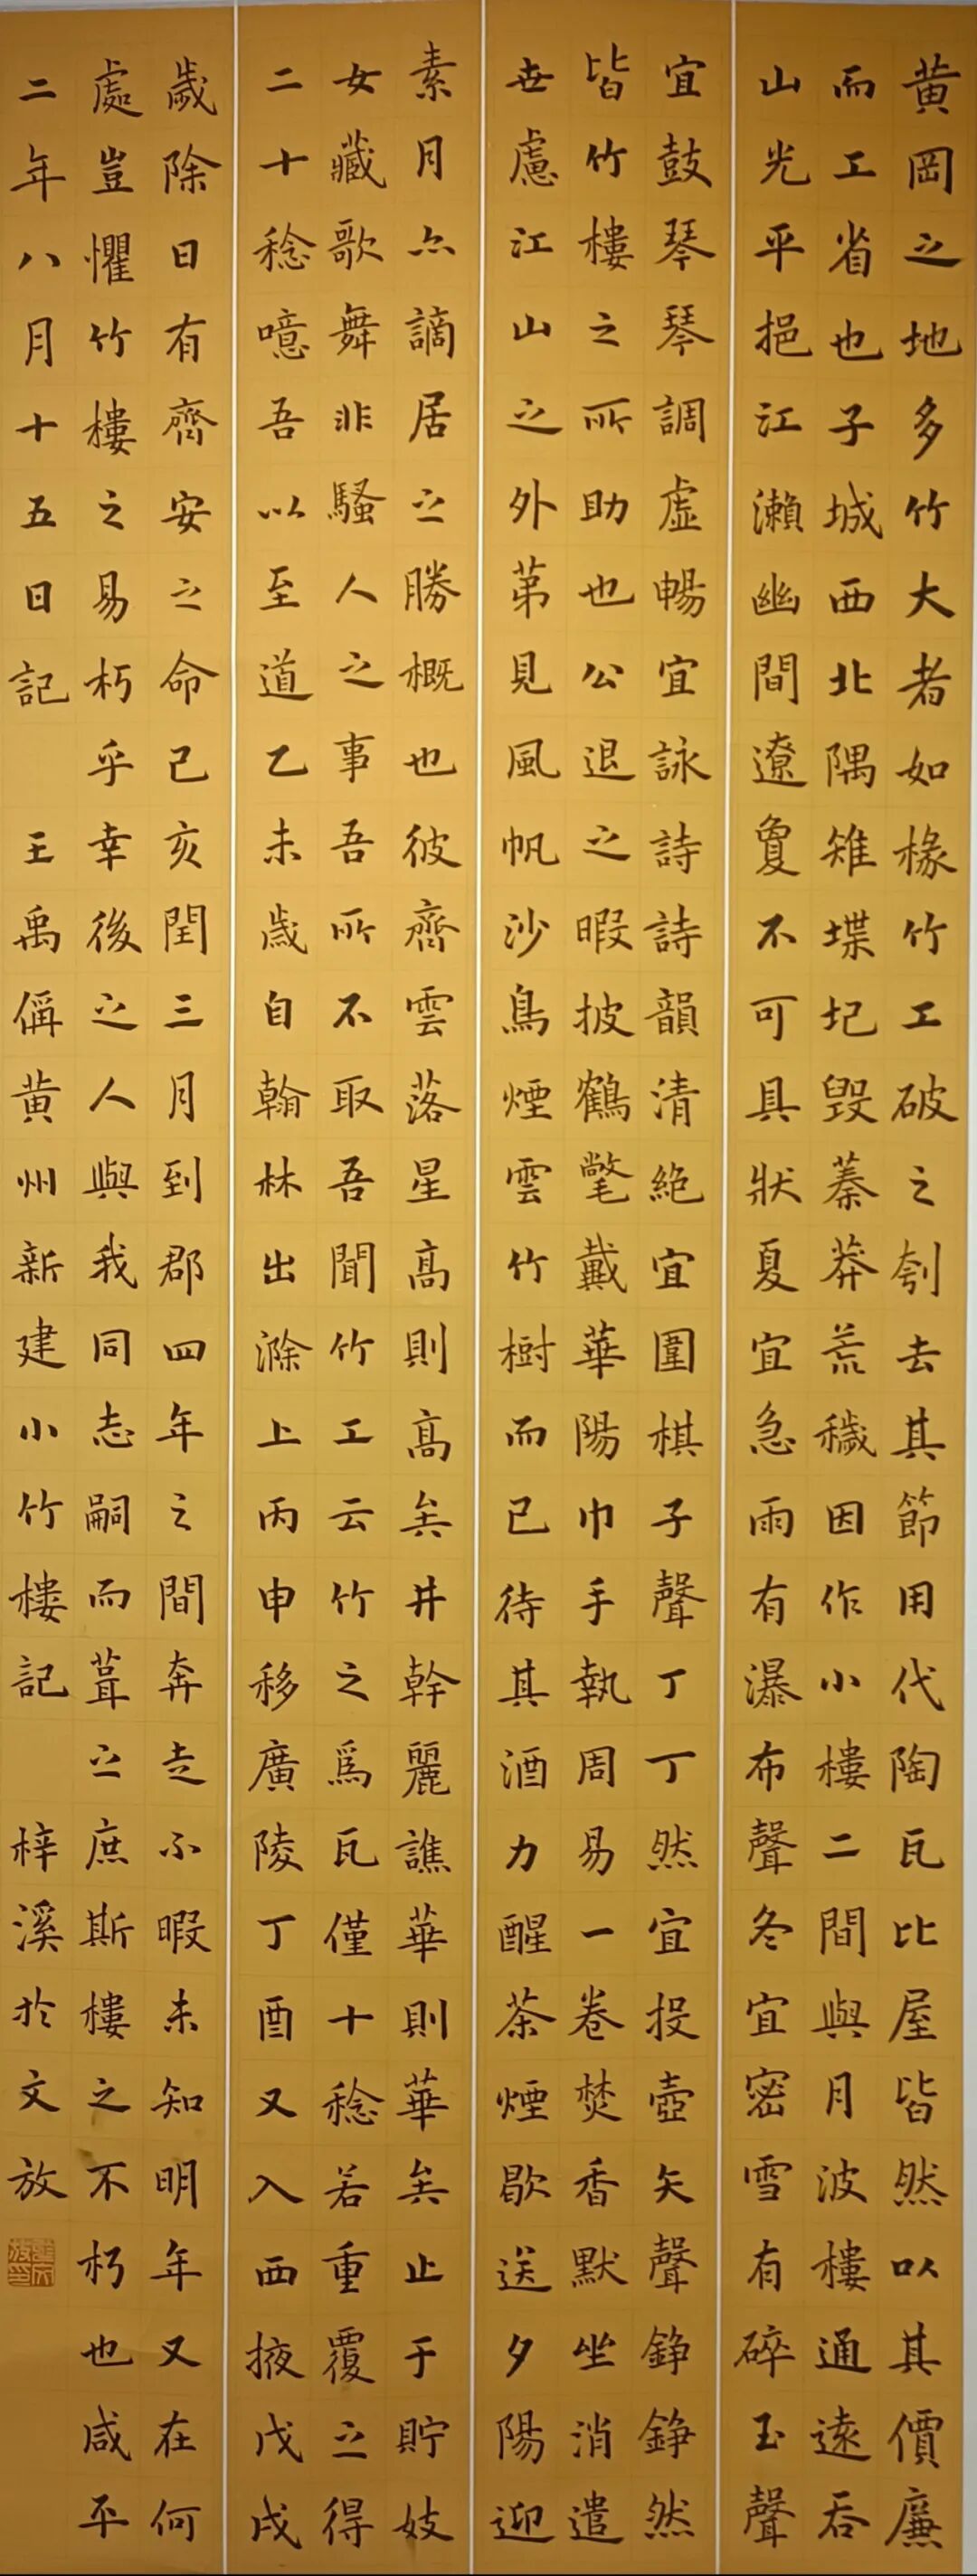 黄岡之地多竹大者如椽竹工破之刳去其節用代陶瓦比屋皆然以其價廉
而工省也子城西北隅雉堞圮毀蓁莽荒穢因作小樓二間與月波樓通遠吞
山光平挹江瀨幽間遼敻不可具狀夏宜急雨有瀑布聲冬宜密雪有碎玉聲
宜鼓琴琴調虛暢宜詠詩詩韻清絶宜圍棋子聲丁丁然宜投壺矢聲錚錚然
皆竹樓之所助也公退之暇披鶴氅戴華陽巾手執周易一卷焚香默坐消遣
世慮江山之外第見風帆沙鳥煙雲竹樹而已待其酒力醒茶煙歇送夕陽迎
素月亦謫居之勝概也彼齊雲落星高則高矣井幹麗譙華則華矣止于貯妓
女藏歌舞非騷人之事吾所不取吾聞竹工云竹之爲瓦僅十稔若重覆之得
二十稔噫吾以至道乙未歲自翰林出滁上丙申移廣陵丁酉又入西掖戊戌
歲除日有齊安之命己亥閏三月到郡四年之間奔走不暇未知明年又在何
處豈懼竹樓之易朽乎幸後之人與我同志嗣而葺之庶斯樓之不朽也咸平
二年八月十五日記 王禹偁黄州新建小竹樓記 梓溪於文放